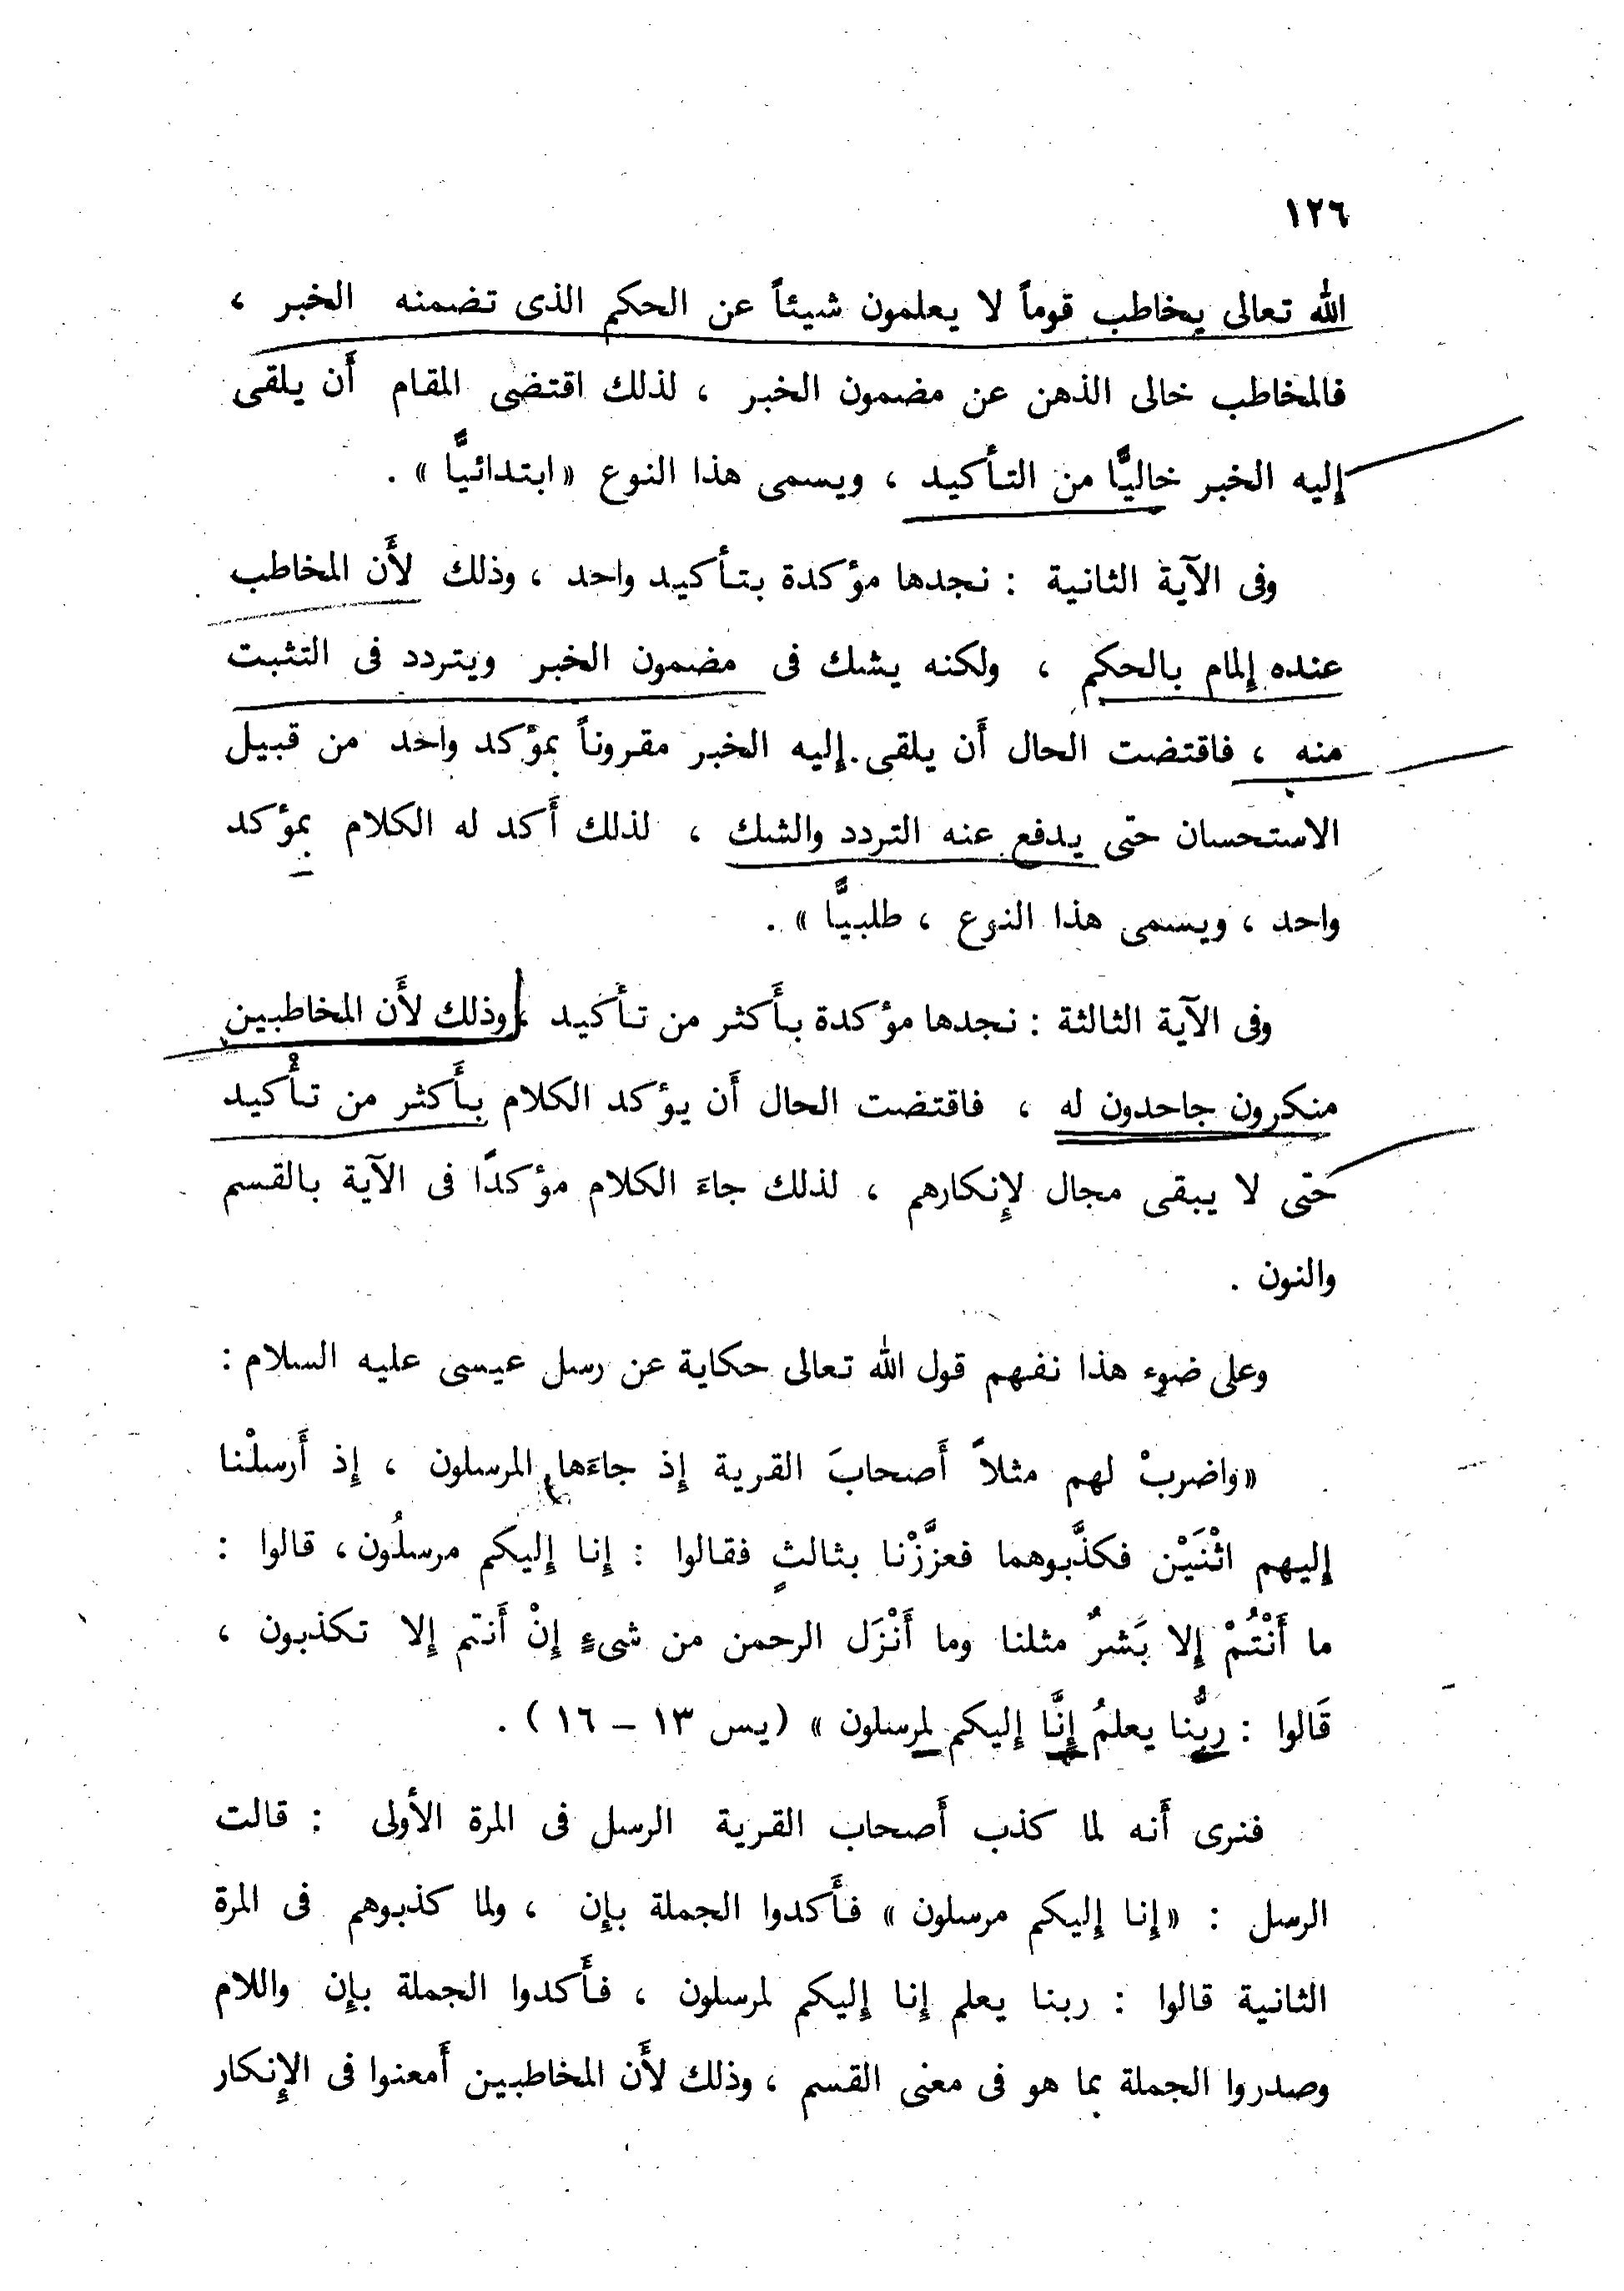 ١٢٦
الله تعالى يخاطب قوماً لا يعلمون شيئاً عن الحكم الذى تضمنه الخبر ،
فالمخاطب خالى الذهن عن مضمون الخبر ، لذلك اقتضى المقام أَن يلقى
إليه الخبر خاليًّا من التأكيد ، ويسمى هذا النوع « ابتدائيًّا » .
وفى الآية الثانية : نجدها مؤكدة بتأكيد واحد ، وذلك لأَن المخاطب
عنده إلمام بالحكم ، ولكنه يشك فى مضمون الخبر ويتردد فى التثبت
منه ، فاقتضت الحال أَن يلقى إليه الخبر مقروناً بمؤكد واحد من قبيل
الاستحسان حتى يدفع عنه التردد والشك ، لذلك أَكد له الكلام بمؤكد
واحد ، ويسمى هذا النوع ، طلبيًّا » .
وفى الآية الثالثة : نجدها مؤكدة بأَكثر من تأكيد ، وذلك لأَن المخاطبين
منكرون جاحدون له ، فاقتضت الحال أَن يؤكد الكلام بأَكثر من تأْكيد
حتى لا يبقى مجال لإِنكارهم ، لذلك جاءَ الكلام مؤكدًا فى الآية بالقسم
والنون .
وعلى ضوء هذا نفهم قول الله تعالى حكاية عن رسل عيسى عليه السلام :
« واضربْ لهم مثلاً أَصحابَ القرية إِذ جاءَها المرسلون ، إِذ أَرسلْنا
إِليهم اثْنَيْن فكذَّبوهما فعزَّزْنا بثالثٍ فقالوا : إِنا إِليكم مرسلُون ، قالوا :
ما أَنْتُمْ إِلا بَشرٌ مثلنا وما أَنْزَل الرحمن من شىءٍ إِنْ أَنتم إِلا تكذبون ،
قَالوا : ربُّنا يعلمُ إِنَّا إِليكم لمرسلون » ( يس ١٣ – ١٦ ) .
فنرى أَنه لما كذب أَصحاب القرية الرسل فى المرة الأُولى : قالت
الرسل : « إِنا إِليكم مرسلون » فأَكدوا الجملة بإِن ، ولما كذبوهم فى المرة
الثانية قالوا : ربنا يعلم إِنا إِليكم لمرسلون ، فأَكدوا الجملة بإِن واللام
وصدروا الجملة بما هو فى معنى القسم ، وذلك لأَن المخاطبين أَمعنوا فى الإِنكار